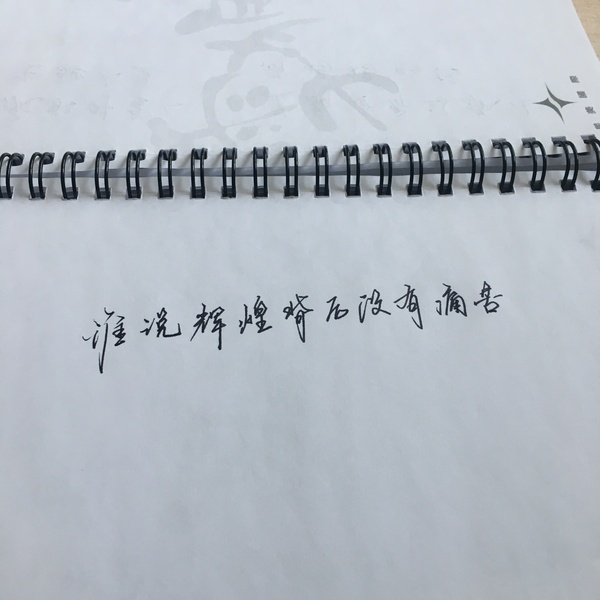 谁说辉煌背后没有痛苦